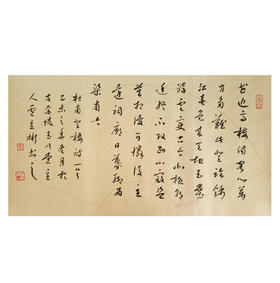 花近高樓傷客心萬
方多難此登臨錦
江春色來天地玉壘
浮雲變古今北極朝
廷終不改西山寇盜
莫相侵可憐後主
還祠廟日暮聊為
梁甫吟
杜甫登樓詩一首
之年 月於
玉川堂主
人 書之